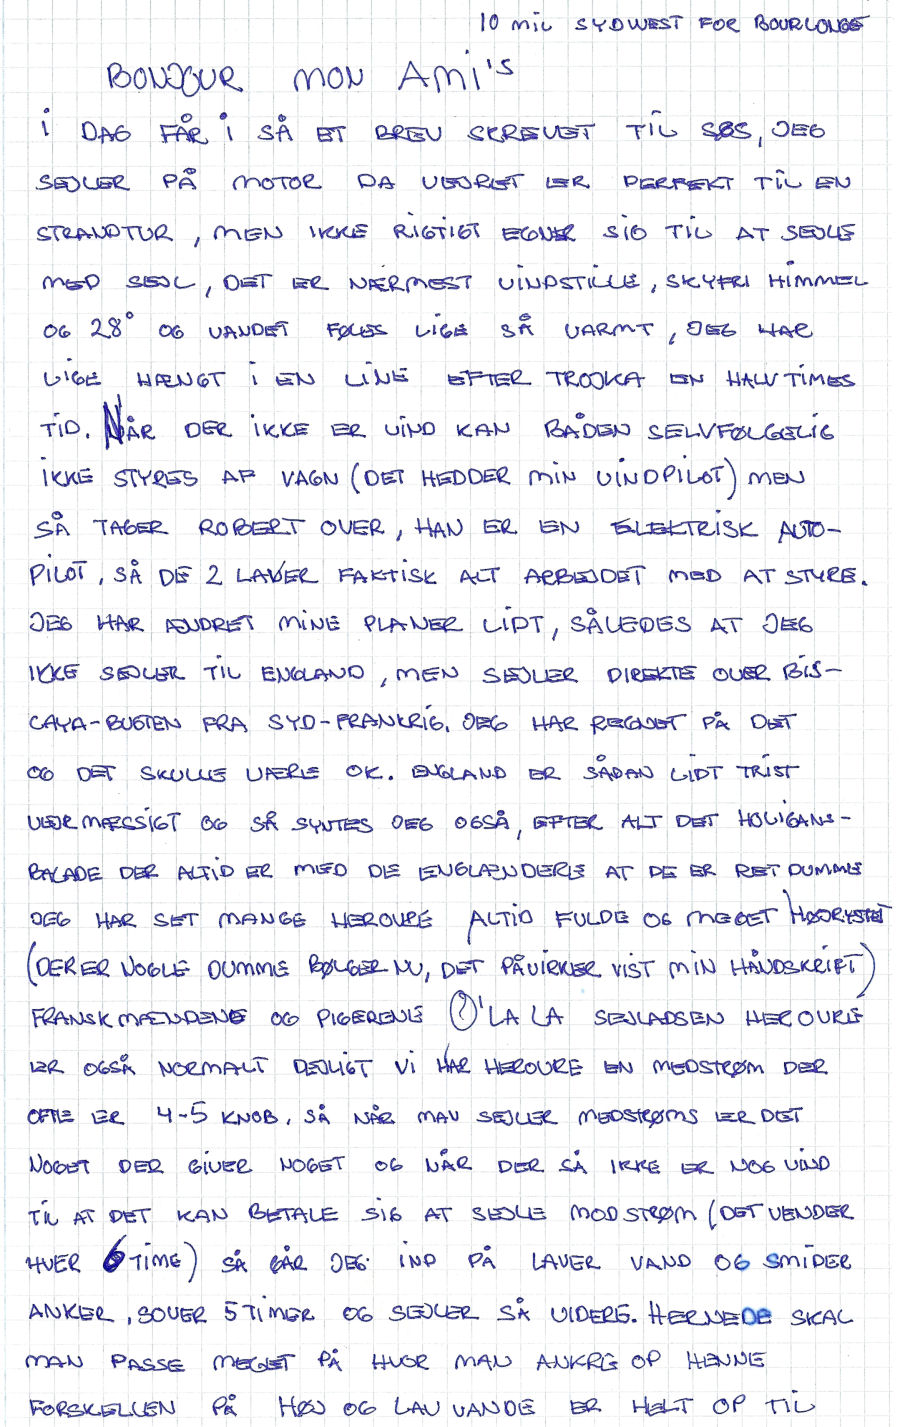 10 mil SYDWEST FOR BOURLONGE
BONJOUR MON AMI'S
I DAG FÅR I SÅ ET BREV SKREVET TIL SØS, JEG
SEJLER PÅ MOTOR DA VEJRET ER PERFEKT TIL EN
STRANDTUR, MEN IKKE RIGTIGT EGNER SIG TIL AT SEJLE
MED SEJL, DET ER NÆRMEST VINDSTILLE, SKYFRI HIMMEL
OG 28° OG VANDET FØLES LIGE SÅ VARMT, JEG HAR
LIGE HÆNGT I EN LINE EFTER TROJKA EN HALV TIMES
TID. NÅR DER IKKE ER VIND KAN BÅDEN SELVFØLGELIG
IKKE STYRES AF VAGN (DET HEDDER MIN VINDPILOT) MEN
SÅ TAGER ROBERT OVER, HAN ER EN ELEKTRISK AUTO-
PILOT, SÅ DE 2 LAVER FAKTISK ALT ARBEJDET MED AT STYRE.
JEG HAR ÆNDRET MINE PLANER LIDT, SÅLEDES AT JEG
IKKE SEJLER TIL ENGLAND, MEN SEJLER DIREKTE OVER BIS-
CAYA-BUGTEN FRA SYD-FRANKRIG. JEG HAR REGNET PÅ DET
OG DET SKULLE VÆRE OK. ENGLAND ER SÅDAN LIDT TRIST
VEJRMÆSSIGT OG SÅ SYNTES JEG OGSÅ, EFTER ALT DET HOLIGANS-
BALADE DER ALTID ER MED DE ENGLÆNDERE AT DE ER RET DUMME
JEG HAR SET MANGE HEROVRE ALTID FULDE OG MEGET HØJRYSTET
(DER ER NOGLE DUMME BØLGER NU, DET PÅVIRKER VIST MIN HÅNDSKRIFT)
FRANSKMÆNDENE OG PIGERENE O'LA LA SEJLADSEN HEROVRE
ER OGSÅ NORMALT DEJLIGT VI HAR HEROVRE EN MEDSTRØM DER
OFTE ER 4-5 KNOB, SÅ NÅR MAN SEJLER MEDSTRØMS ER DET
NOGET DER GIVER NOGET OG NÅR DER SÅ IKKE ER NOG VIND
TIL AT DET KAN BETALE SIG AT SEJLE MODSTRØM (DET VENDER
HVER 6 TIME) SÅ GÅR JEG IND PÅ LAVER VAND OG SMIDER
ANKER, SOVER 5 TIMER OG SEJLER SÅ VIDERE. HERNEDE SKAL
MAN PASSE MEGET PÅ HVOR MAN ANKRE OP HENNE
FORSKELLEN PÅ HØJ OG LAV VANDE ER HELT OP TIL